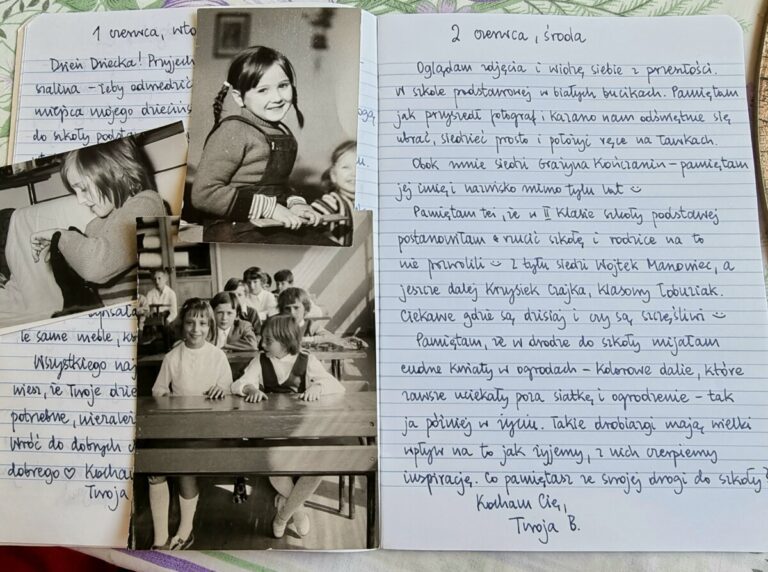 1 czerwca, wto
Dzień Dziecka! Przyjech
sialina - żeby odwiedzić
miejsca mojego dziecińs
do szkoły podsta
te same meble, kt
Wszystkiego naj
wiesz, że Twoje dzie
potrzebne, nieraz
wróć do dobrych c
dobrego ♡ Kocham
Twoja
2 czerwca, środa
Oglądam zdjęcia i widzę siebie z przeszłości.
W szkole podstawowej w białych bucikach. Pamiętam
jak przyszedł fotograf i kazano nam odświętnie się
ubrać, siedzieć prosto i położyć ręce na ławkach.
Obok mnie siedzi Grażyna Kończanin - pamiętam
jej imię i nazwisko mimo tylu lat ☺
Pamiętam też, że w II klasie szkoły podstawowej
postanowiłam rzucić szkołę i rodzice na to
nie pozwolili ☺ Z tyłu siedzi Wojtek Manowiec, a
jeszcze dalej Krzysiek Czajka, klasowy łobuziak.
Ciekawe gdzie są dzisiaj i czy są szczęśliwi ☺
Pamiętam, że w drodze do szkoły mijałam
cudne kwiaty w ogrodach - kolorowe dalie, które
zawsze uciekały poza siatkę i ogrodzenie - tak
ja później w życiu. Takie drobiazgi mają wielki
wpływ na to jak żyjemy, z nich czerpiemy
inspirację. Co pamiętasz ze swojej drogi do szkoły?
Kocham Cię,
Twoja B.